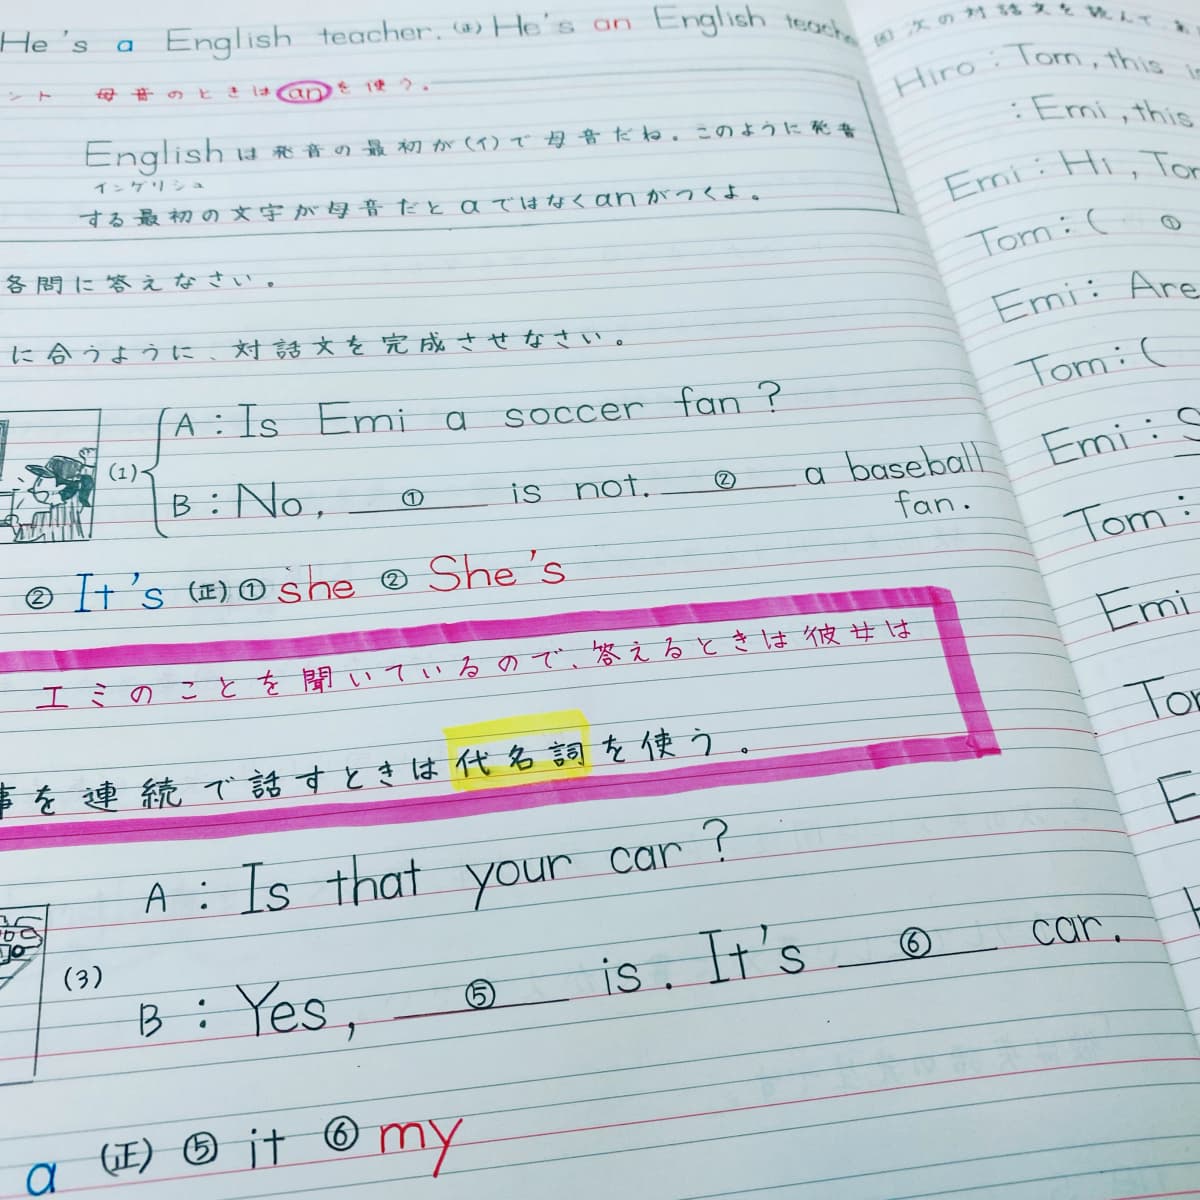 He's a English teacher. (正) He's an English teacher
ント 母音のときは an を使う。
Englishは発音の最初が(イ)で母音だね。このように発音
イングリシュ
する最初の文字が母音だとaではなくanがつくよ。
各問に答えなさい。
に合うように、対話文を完成させなさい。
(1) A : Is Emi a soccer fan?
B : No, ① is not. ② a baseball
fan.
② It's (正) ① she ② She's
エミのことを聞いているので、答えるときは彼女は
事を連続で話すときは代名詞を使う。
(3) A : Is that your car?
B : Yes, ⑤ is. It's ⑥ car.
a (正) ⑤ it ⑥ my
次の対話文を読んで、
Hiro : Tom, this
: Emi, this
Emi : Hi, Tom
Tom : ( ①
Emi : Are
Tom : (
Emi :
Tom :
Emi